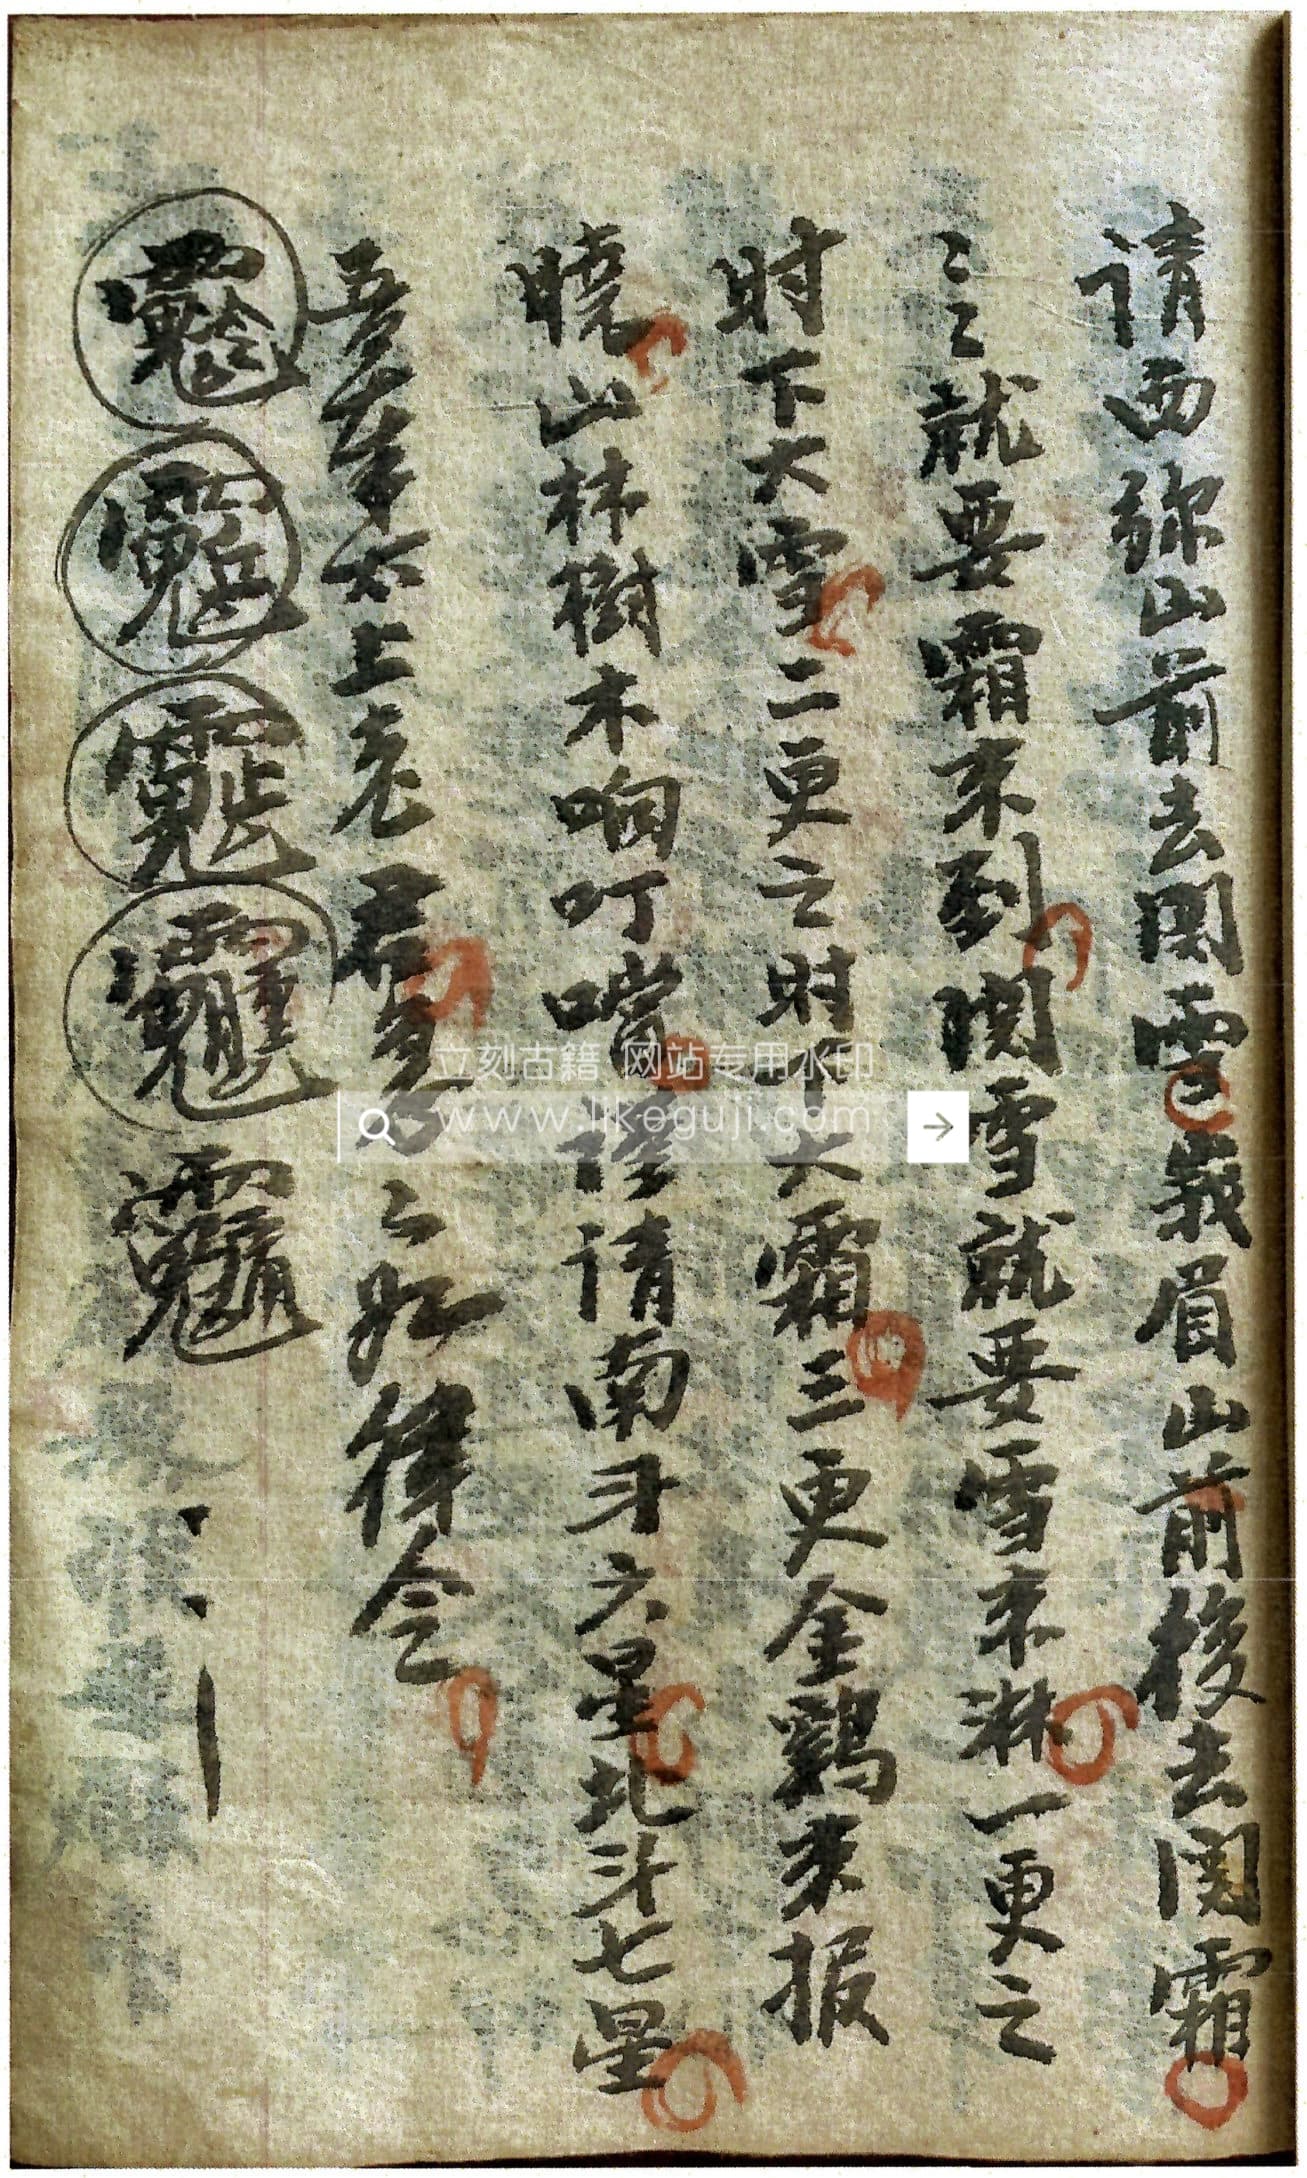 请西弥山前去関雪峩眉山前後去関霜
〻〻就要霜来到関雪就要雪来淋一更之
时下大雪二更之时下大霜三更金鷄来报
曉山林樹木响叮噹 请南斗六星北斗七星
吾奉太上老君 律令
立刻古籍 网站专用水印
www.likeguji.com